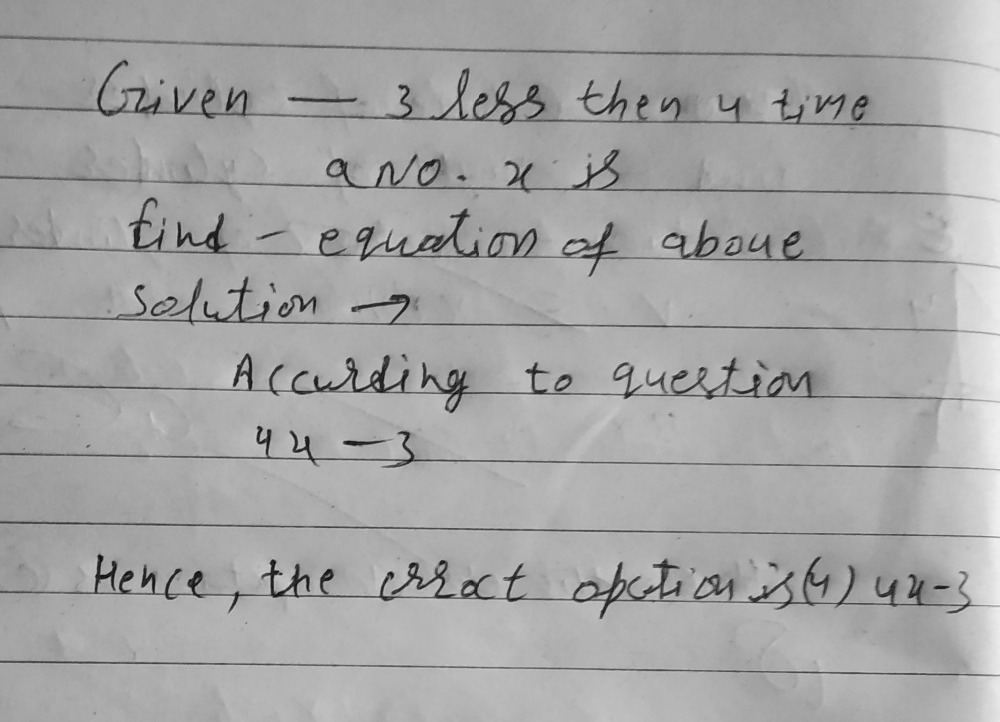 Given — 3 less then 4 time
a No. x is
find - equation of above
Solution →
According to question
4x - 3
Hence, the corract opction is (4) 4x-3